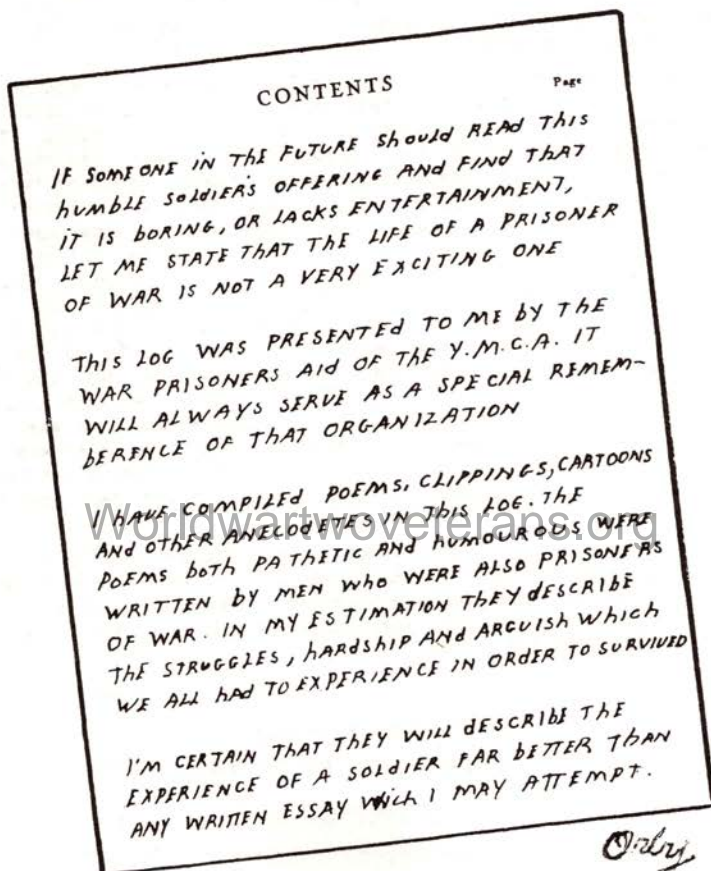 CONTENTS
Page
IF SOMEONE IN THE FUTURE ShOULD READ THIS
hUMBLE SOLDIER'S OFFERING AND FIND THAT
IT IS BORING, OR LACKS ENTERTAINMENT,
LET ME STATE THAT THE LIFE OF A PRISONER
OF WAR IS NOT A VERY EXCITING ONE
THIS LOG WAS PRESENTED TO ME BY THE
WAR PRISONERS AID OF THE Y.M.C.A. IT
WILL ALWAYS SERVE AS A SPECIAL REMEM-
BERENCE OF THAT ORGANIZATION
I HAVE COMPILED POEMS, CLIPPINGS, CARTOONS
AND OTHER ANECODETES IN THIS LOG. THE
Worldwartwoveterans.org
POEMS BOTH PATHETIC AND HUMOUROUS WERE
WRITTEN BY MEN WHO WERE ALSO PRISONERS
OF WAR. IN MY ESTIMATION THEY DESCRIBE
THE STRUGGLES, HARDSHIP AND ARGUISH WHICH
WE ALL HAD TO EXPERIENCE IN ORDER TO SURVIVED
I'M CERTAIN THAT THEY WILL DESCRIBE THE
EXPERIENCE OF A SOLDIER FAR BETTER THAN
ANY WRITTEN ESSAY WHICH I MAY ATTEMPT.